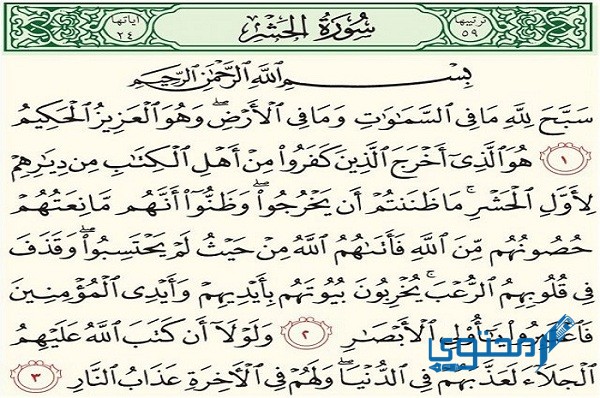 ترتيبها ٥٩ سُورَةُ الحَشْرِ آياتها ٢٤
بِسْمِ اللَّهِ الرَّحْمَٰنِ الرَّحِيمِ
سَبَّحَ لِلَّهِ مَا فِي السَّمَٰوَٰتِ وَمَا فِي الْأَرْضِ ۖ وَهُوَ الْعَزِيزُ الْحَكِيمُ
١ هُوَ الَّذِي أَخْرَجَ الَّذِينَ كَفَرُوا مِنْ أَهْلِ الْكِتَٰبِ مِن دِيَٰرِهِمْ
لِأَوَّلِ الْحَشْرِ ۚ مَا ظَنَنتُمْ أَن يَخْرُجُوا ۖ وَظَنُّوا أَنَّهُم مَّانِعَتُهُمْ
حُصُونُهُم مِّنَ اللَّهِ فَأَتَىٰهُمُ اللَّهُ مِنْ حَيْثُ لَمْ يَحْتَسِبُوا ۖ وَقَذَفَ
فِي قُلُوبِهِمُ الرُّعْبَ ۚ يُخْرِبُونَ بُيُوتَهُم بِأَيْدِيهِمْ وَأَيْدِي الْمُؤْمِنِينَ
فَاعْتَبِرُوا يَٰأُولِي الْأَبْصَٰرِ ٢ وَلَوْلَا أَن كَتَبَ اللَّهُ عَلَيْهِمُ
الْجَلَاءَ لَعَذَّبَهُمْ فِي الدُّنْيَا ۖ وَلَهُمْ فِي الْآخِرَةِ عَذَابُ النَّارِ ٣
محتوى